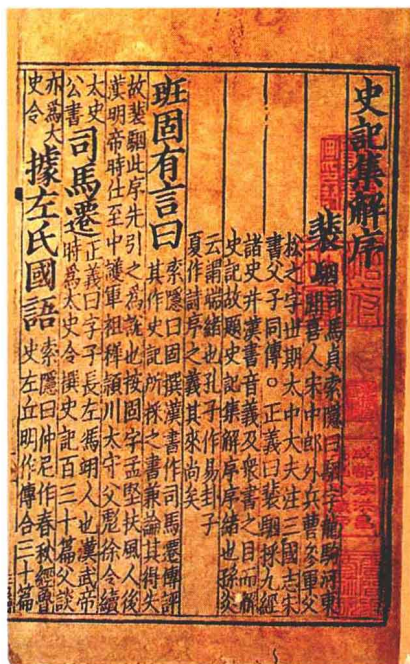 史記集解序
裴駰司馬貞索隱曰駰字龍駒河東
聞喜人宋中郎外兵曹參軍父
松之字世期太中大夫注三國志宋
書父子同傳。正義曰裴駰採九經
諸史并漢書音義及衆書之目而解
史記故題史記集解序序緒也孫炎
云謂端緒也孔子作易序卦子
夏作詩序序之義其來尚矣
班固有言曰索隱曰固撰漢書作司馬遷傳評
其作史記所採之書兼論其得失
故裴駰此序先引之爲說也按固字孟堅扶風人後
漢明帝時仕至中護軍祖稚頴川太守父彪徐令續
太史公書司馬遷正義曰字子長左馮翊人也漢武帝
時爲太史令撰史記百三十篇父談
亦爲太史令據左氏國語索隱曰仲尼作春秋經魯
史左丘明作傳合三十篇